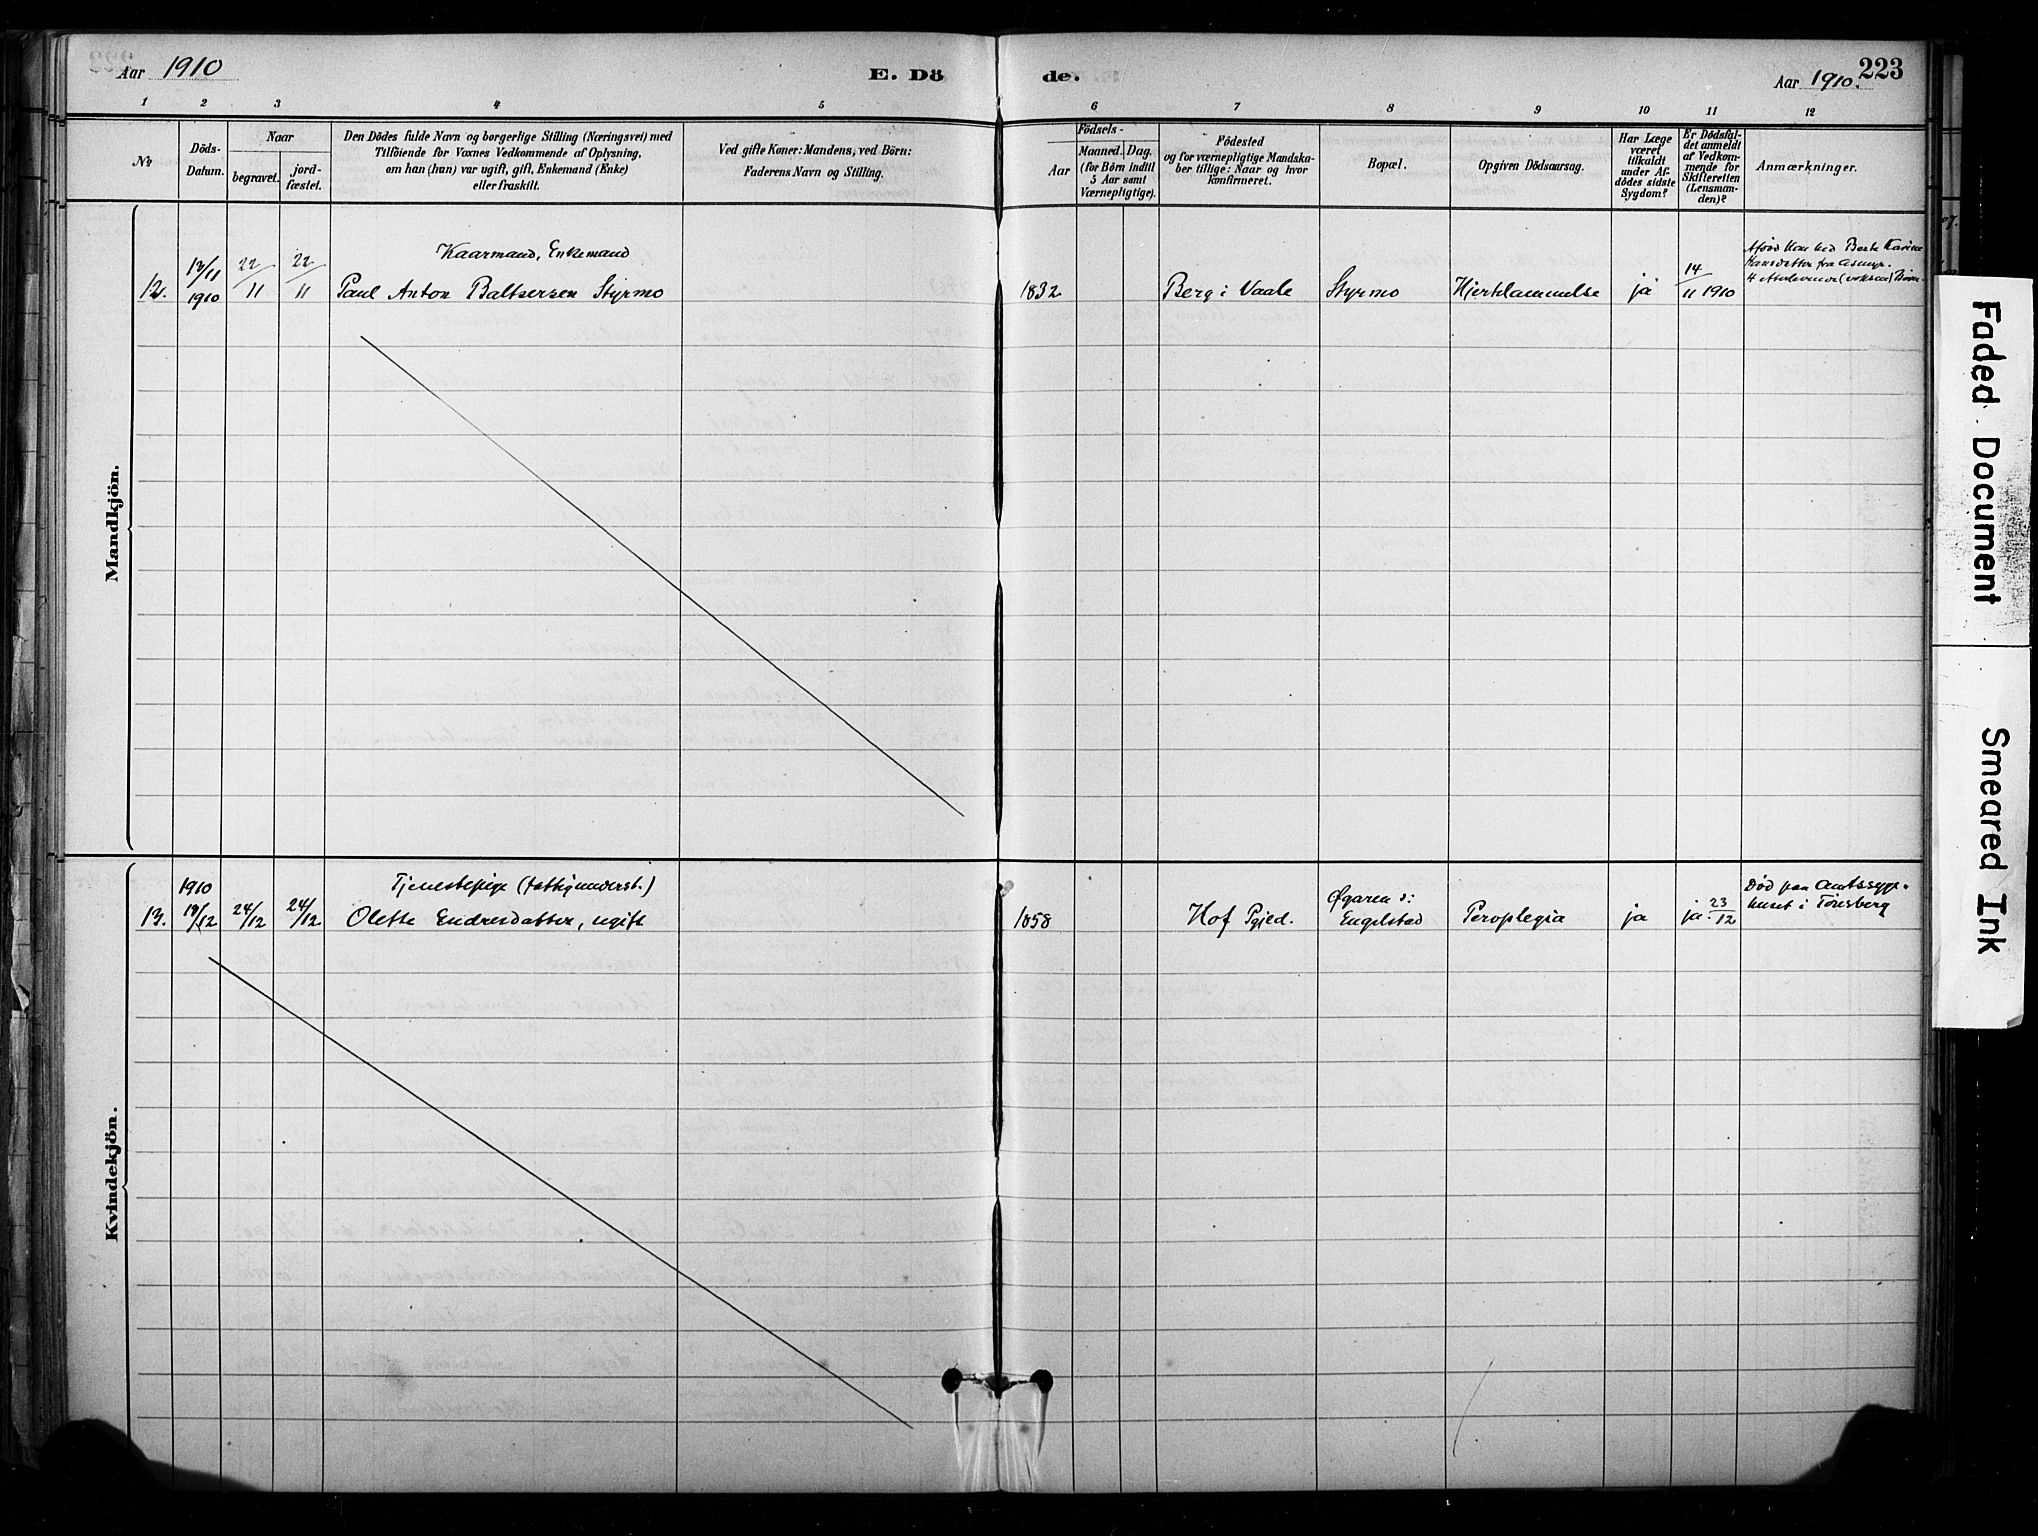 Aar 1910
E. Dö
de.
Aar 1910.
223
1 2 3 4 5 6 7 8 9 10 11 12
No
Döds-
Datum.
Naar
begravet.
jord-
fæstet.
Den Dödes fulde Navn og borgerlige Stilling (Næringsvei) med
Tilföiende for Voxnes Vedkommende af Oplysning,
om han (hun) var ugift, gift, Enkemand (Enke)
eller fraskilt.
Ved gifte Koner: Mandens, ved Börn:
Faderens Navn og Stilling.
Födsels-
Aar
Maaned. Dag.
(for Börn indtil
5 Aar samt
Værnepligtige).
Födested
og for værnepligtige Mandska-
ber tillige: Naar og hvor
konfirmeret.
Bopæl.
Opgiven Dödsaarsag.
Har Læge
været
tilkaldt
under Af-
dödes sidste
Sygdom?
Er Dödsfal-
det anmeldt
af Vedkom-
mende for
Skifteretten
(Lensman-
den)?
Anmærkninger.
Mandkjön.
12.
13/11
1910
22/11
22/11
Kaarmand, Enkemand
Paul Anton Baltsersen Styrmo
1832
Berg i Vaale
Styrmo
Hjertelammelse
ja
14/11 1910
Berte Karine
Hansdatter fra
4 efterlevende (voksne) Börn.
Kvindekjön.
13.
1910
18/12
24/12
24/12
Tjenestepige (fattigunderst.)
Olette Endresdatter, ugift
1858
Hof Pgjed.
Øgaren
Engelstad
Peroplegia
ja
ja. 23/12
Död paa Amtssyge-
huset i Tönsberg
Faded Document
Smeared Ink